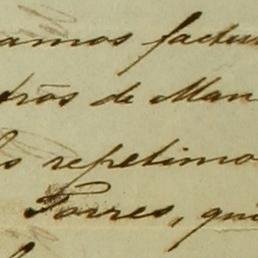 amos factu
tros de Man
s repetimo
Torres, qui